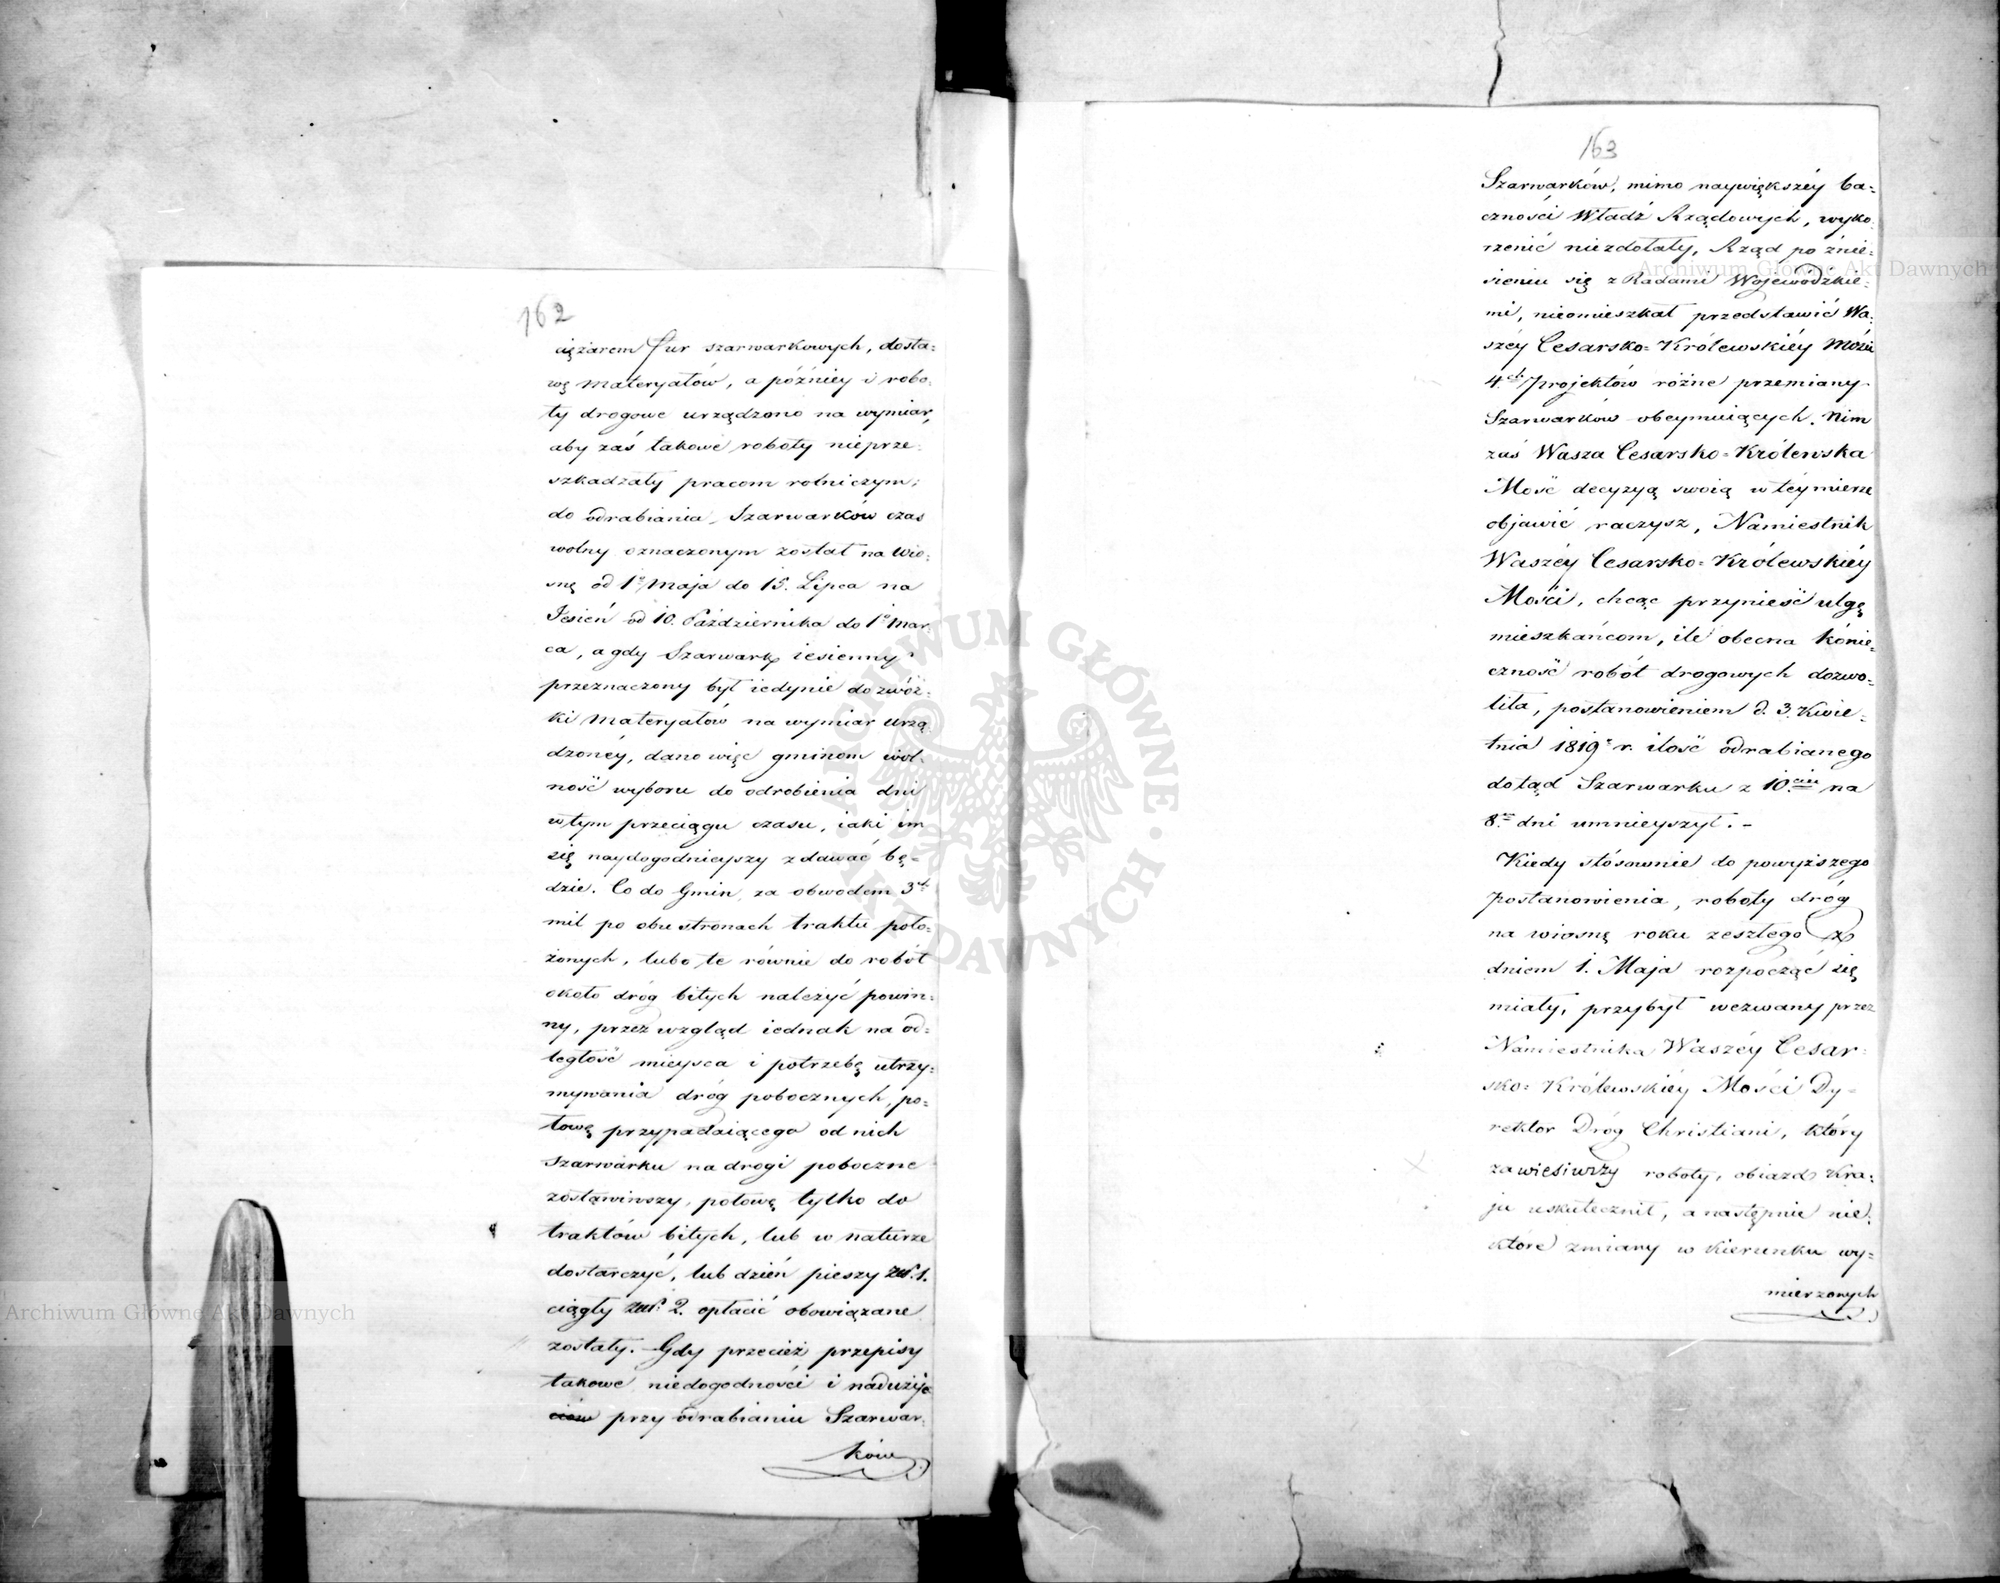 162
ciężarem fur szarwarkowych, dosta=
wę materyałów, a późniey i robo=
ty drogowe urządzono na wymiar,
aby zaś takowe roboty nieprze=
szkadzały pracom rolniczym;
do odrabiania Szarwarków czas
wolny oznaczonym został na wio=
snę od 1o Maja do 15. Lipca na
Jesień od 10. Października do 1o Mar=
ca, a gdy Szarwark iesienny
przeznaczony był iedynie do zwóz=
ki Materyałów na wymiar urzą
dzonéy, dano więc gminom wol=
ność wyboru do odrobienia dni
w tym przeciągu czasu, iaki im
się naydogodnieyszy zdawać bę=
dzie. Co do Gmin za obwodem 3ch
mil po obu stronach traktu poło=
żonych, lubo te równie do robót
około dróg bitych należyć powin=
ny, przez wzgląd iednak na od=
ległość mieysca i potrzebę utrzy=
mywania dróg pobocznych, po=
łowę przypadaiącego od nich
szarwarku na drogi poboczne
zostawiwszy, połowę tylko do
traktów bitych, lub w naturze
dostarczyć, lub dzień pieszy złł. 1.
ciągły złł. 2. opłacić obowiązane
zostały. Gdy przecież przepisy
takowe niedogodności i nadużyć
przy odrabianiu Szarwar=
ków
163
Szarwarków, mimo naywiększéy ba=
czności Władź Rządowych, wyko=
rzenić niezdołały, Rząd po znie=
sieniu się z Radami Wojewódzkie=
mi, nieomieszkał przedstawić Wa=
széy Cesarsko=Królewskiéy Mości
4ch Projektów różne przemiany
Szarwarków obeymuiących. Nim
zaś Wasza Cesarsko=Królewska
Mość decyzyą swoią w téy mierze
objawić raczysz, Namiestnik
Waszéy Cesarsko=Królewskiéy
Mości, chcąc przynieść ulgę
mieszkańcom, ile obecna konie=
czność robót drogowych dozwo=
liła, postanowieniem d. 3. Kwie=
tnia 1819o r. ilość odrabianego
dotąd Szarwarku z 10ciu na
8m dni umnieyszył. -
Kiedy stósownie do powyższego
postanowienia, roboty dróg
na wiosnę roku zeszłego z
dniem 1. Maja rozpocząć się
miały, przybył wezwany przez
Namiestnika Waszéy Cesar=
sko=Królewskiéy Mości Dy=
rektor Dróg Christiani, który
zawiesiwszy roboty, obiazd Kra=
ju uskutecznił, a następnie nie=
które zmiany w kierunku wy=
mierzonych
Archiwum Główne Akt Dawnych
Archiwum Główne Akt Dawnych
ARCHIWUM GŁÓWNE AKT DAWNYCH